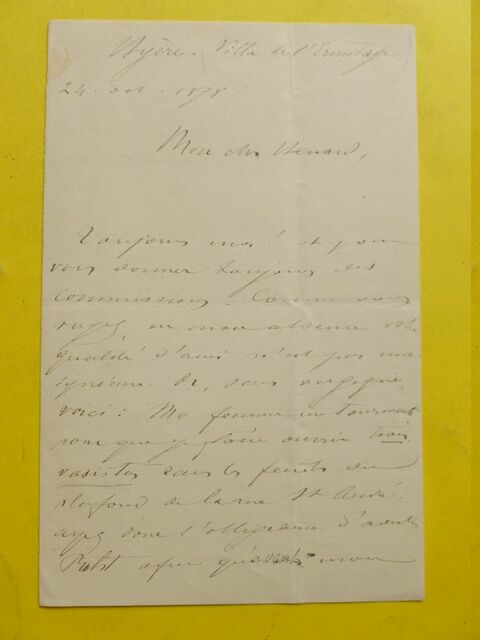 Hyère - (Villa de l'Ermitage)
24 1878.
Mon cher
Toujours moi ! et pour
vous donner toujours des
commissions. Comme vous
voyez en mon absence votre
qualité d'ami n'est pas une
sinécure. Or, sans vergogne,
voici : Ma femme me tourmente
pour que je fasse ouvrir trois
vasistas sous les du
plafond de la rue St André.
ayez donc l'obligeance d'avertir
afin qu'avant mon